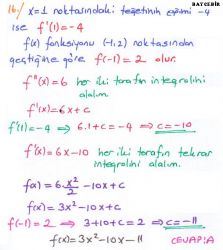 BAYCEBİR
16/ x=1 noktasındaki teğetinin eğimi -4
ise f'(1)=-4
f(x) fonksiyonu (-1,2) noktasından
geçtiğine göre f(-1)=2 olur.
f''(x)=6 her iki tarafın integralini
alalım.
f'(x)=6x+c
f'(1)=-4 ⇒ 6.1+c=-4 ⇒ c=-10
f'(x)=6x-10 her iki tarafın tekrar
integralini alalım.
f(x)=6.x²/2-10x+c
f(x)=3x²-10x+c
f(-1)=2 ⇒ 3+10+c=2 ⇒ c=-11
f(x)=3x²-10x-11 CEVAP:A